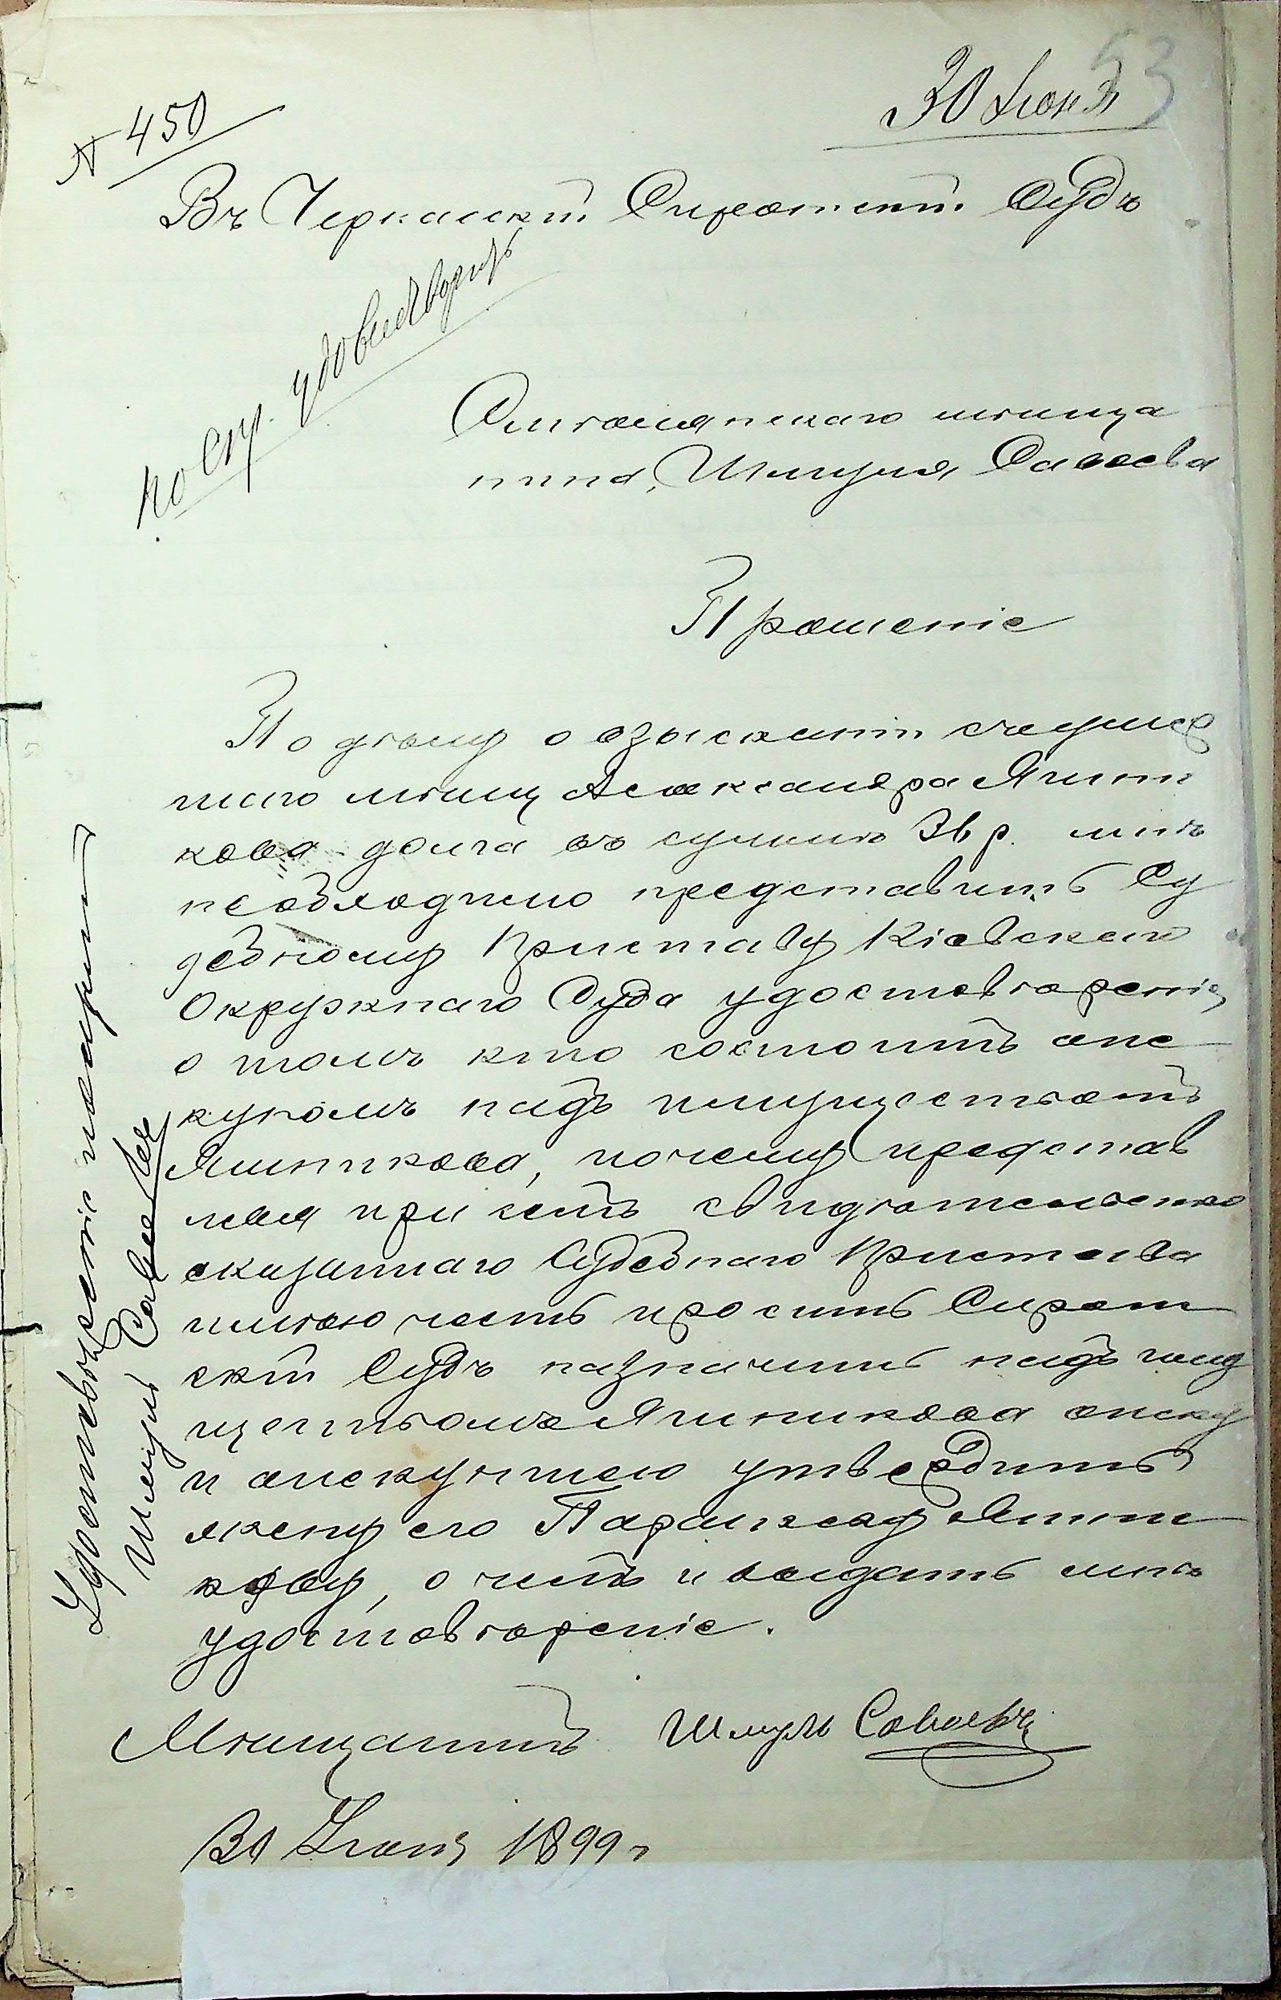 53
30 Іюня
№ 450
Въ Черкасскій Сиротскій Судъ
по ст. удовлетворить
Смѣлянскаго мѣщанина
нина, Шмуля Савева
Прошеніе
По дѣлу о взысканіи съ умер
шаго мѣщ Александра Ячни
кова долга въ суммѣ р. мнѣ
необходимо представить Су
дебному Приставу Кіевскаго
Окружнаго Суда удостовѣреніе
о томъ кто состоитъ опе
куномъ надъ имуществомъ
почему представ
ляя при семъ свидѣтельство
сказаннаго Судебнаго Пристава
имѣю честь просить Сирот
скій Судъ назначить надъ иму
ществомъ опеку
и опекуншею утвердить
жену его Параскеву
кову, о чемъ и выдать мнѣ
удостовѣреніе.
Мѣщанинъ Шмуль
30 Іюня 1899 г
Удостовѣреніе получилъ
Шмуль